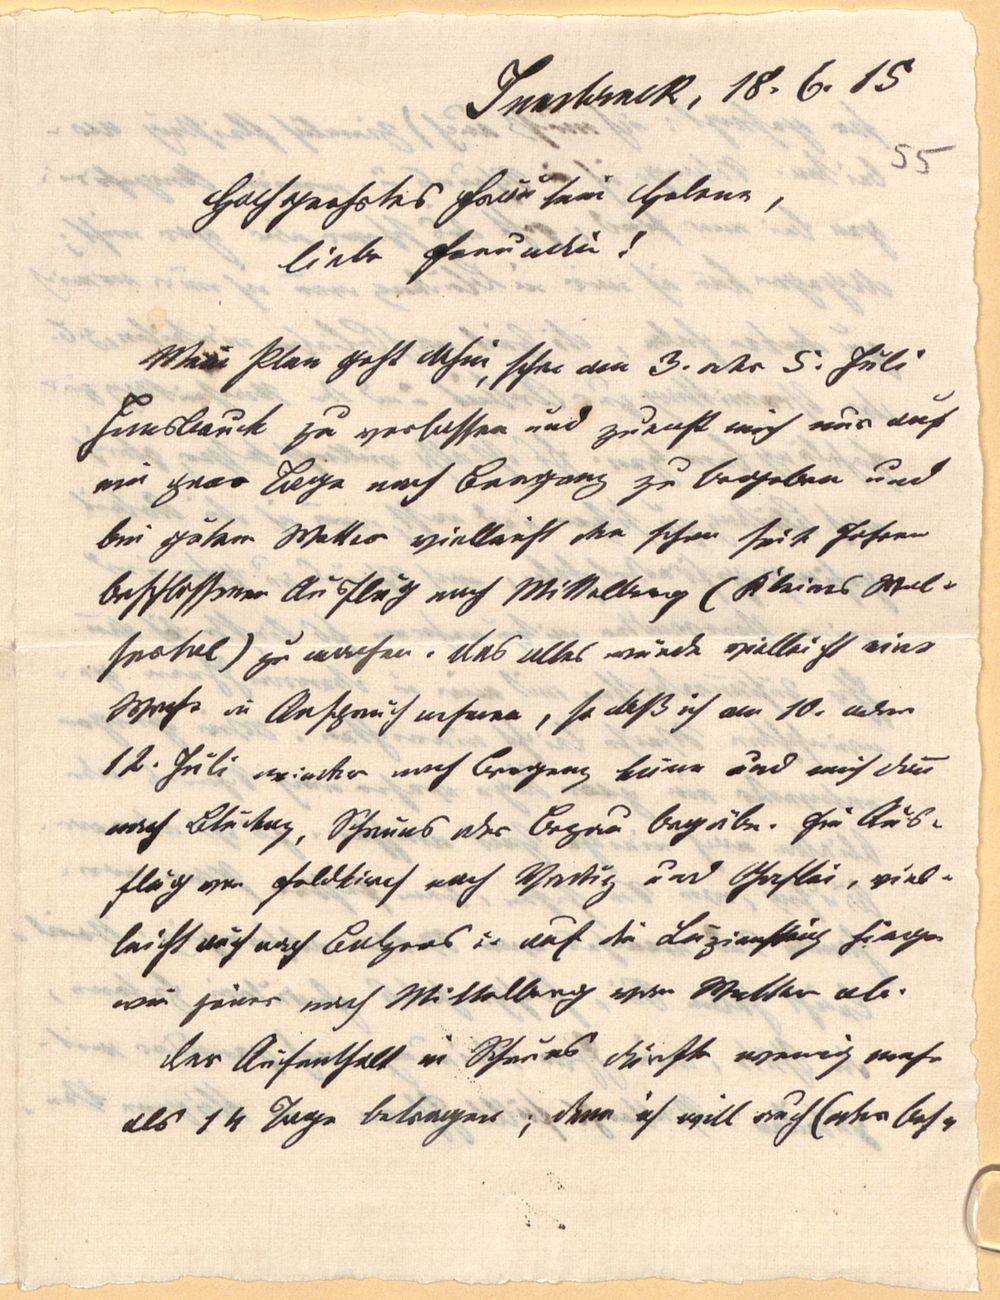 Innsbruck, 18. 6. 15
55
Hochgeehrtes Fräulein Helene,
liebe Freundin!
Mein Plan geht dahin, schon am 3. oder 5. Juli
Innsbruck zu verlassen und zunächst mich nur auf
ein paar Tage nach Bregenz zu begeben und
bei gutem Wetter vielleicht den schon seit Jahren
beschlossenen Ausflug nach Mittelberg (Kleines Wal-
sertal) zu machen. Das alles würde vielleicht eine
Woche in Anspruch nehmen, so daß ich am 10. oder
12. Juli wieder nach Bregenz käme und mich dann
nach Bludenz, Schruns oder Bezau begäbe. Ein Aus-
flug von Feldkirch nach Vaduz und Gaflei, viel-
leicht auch nach Balzers u. auf die Luziensteig hinge
wie jener nach Mittelberg vom Wetter ab.
Der Aufenthalt in Schruns dürfte wenig mehr
als 14 Tage betragen; denn ich will auch (oder bess